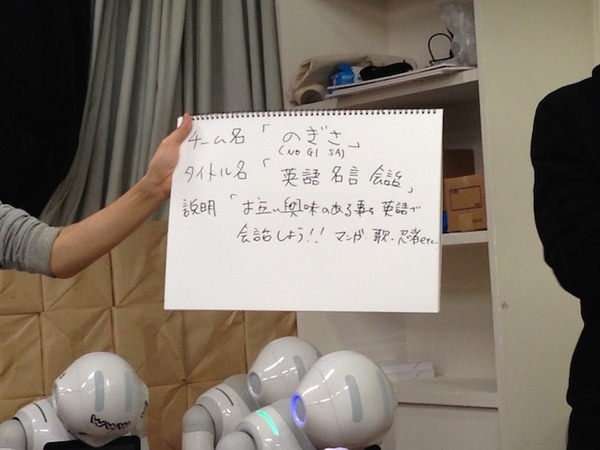 チーム名「のぎさ」
(NO GI SA)
タイトル名「英語名言会話」
説明「お互い興味のある事を英語で
会話しよう!! マンガ・歌・忍者etc
www